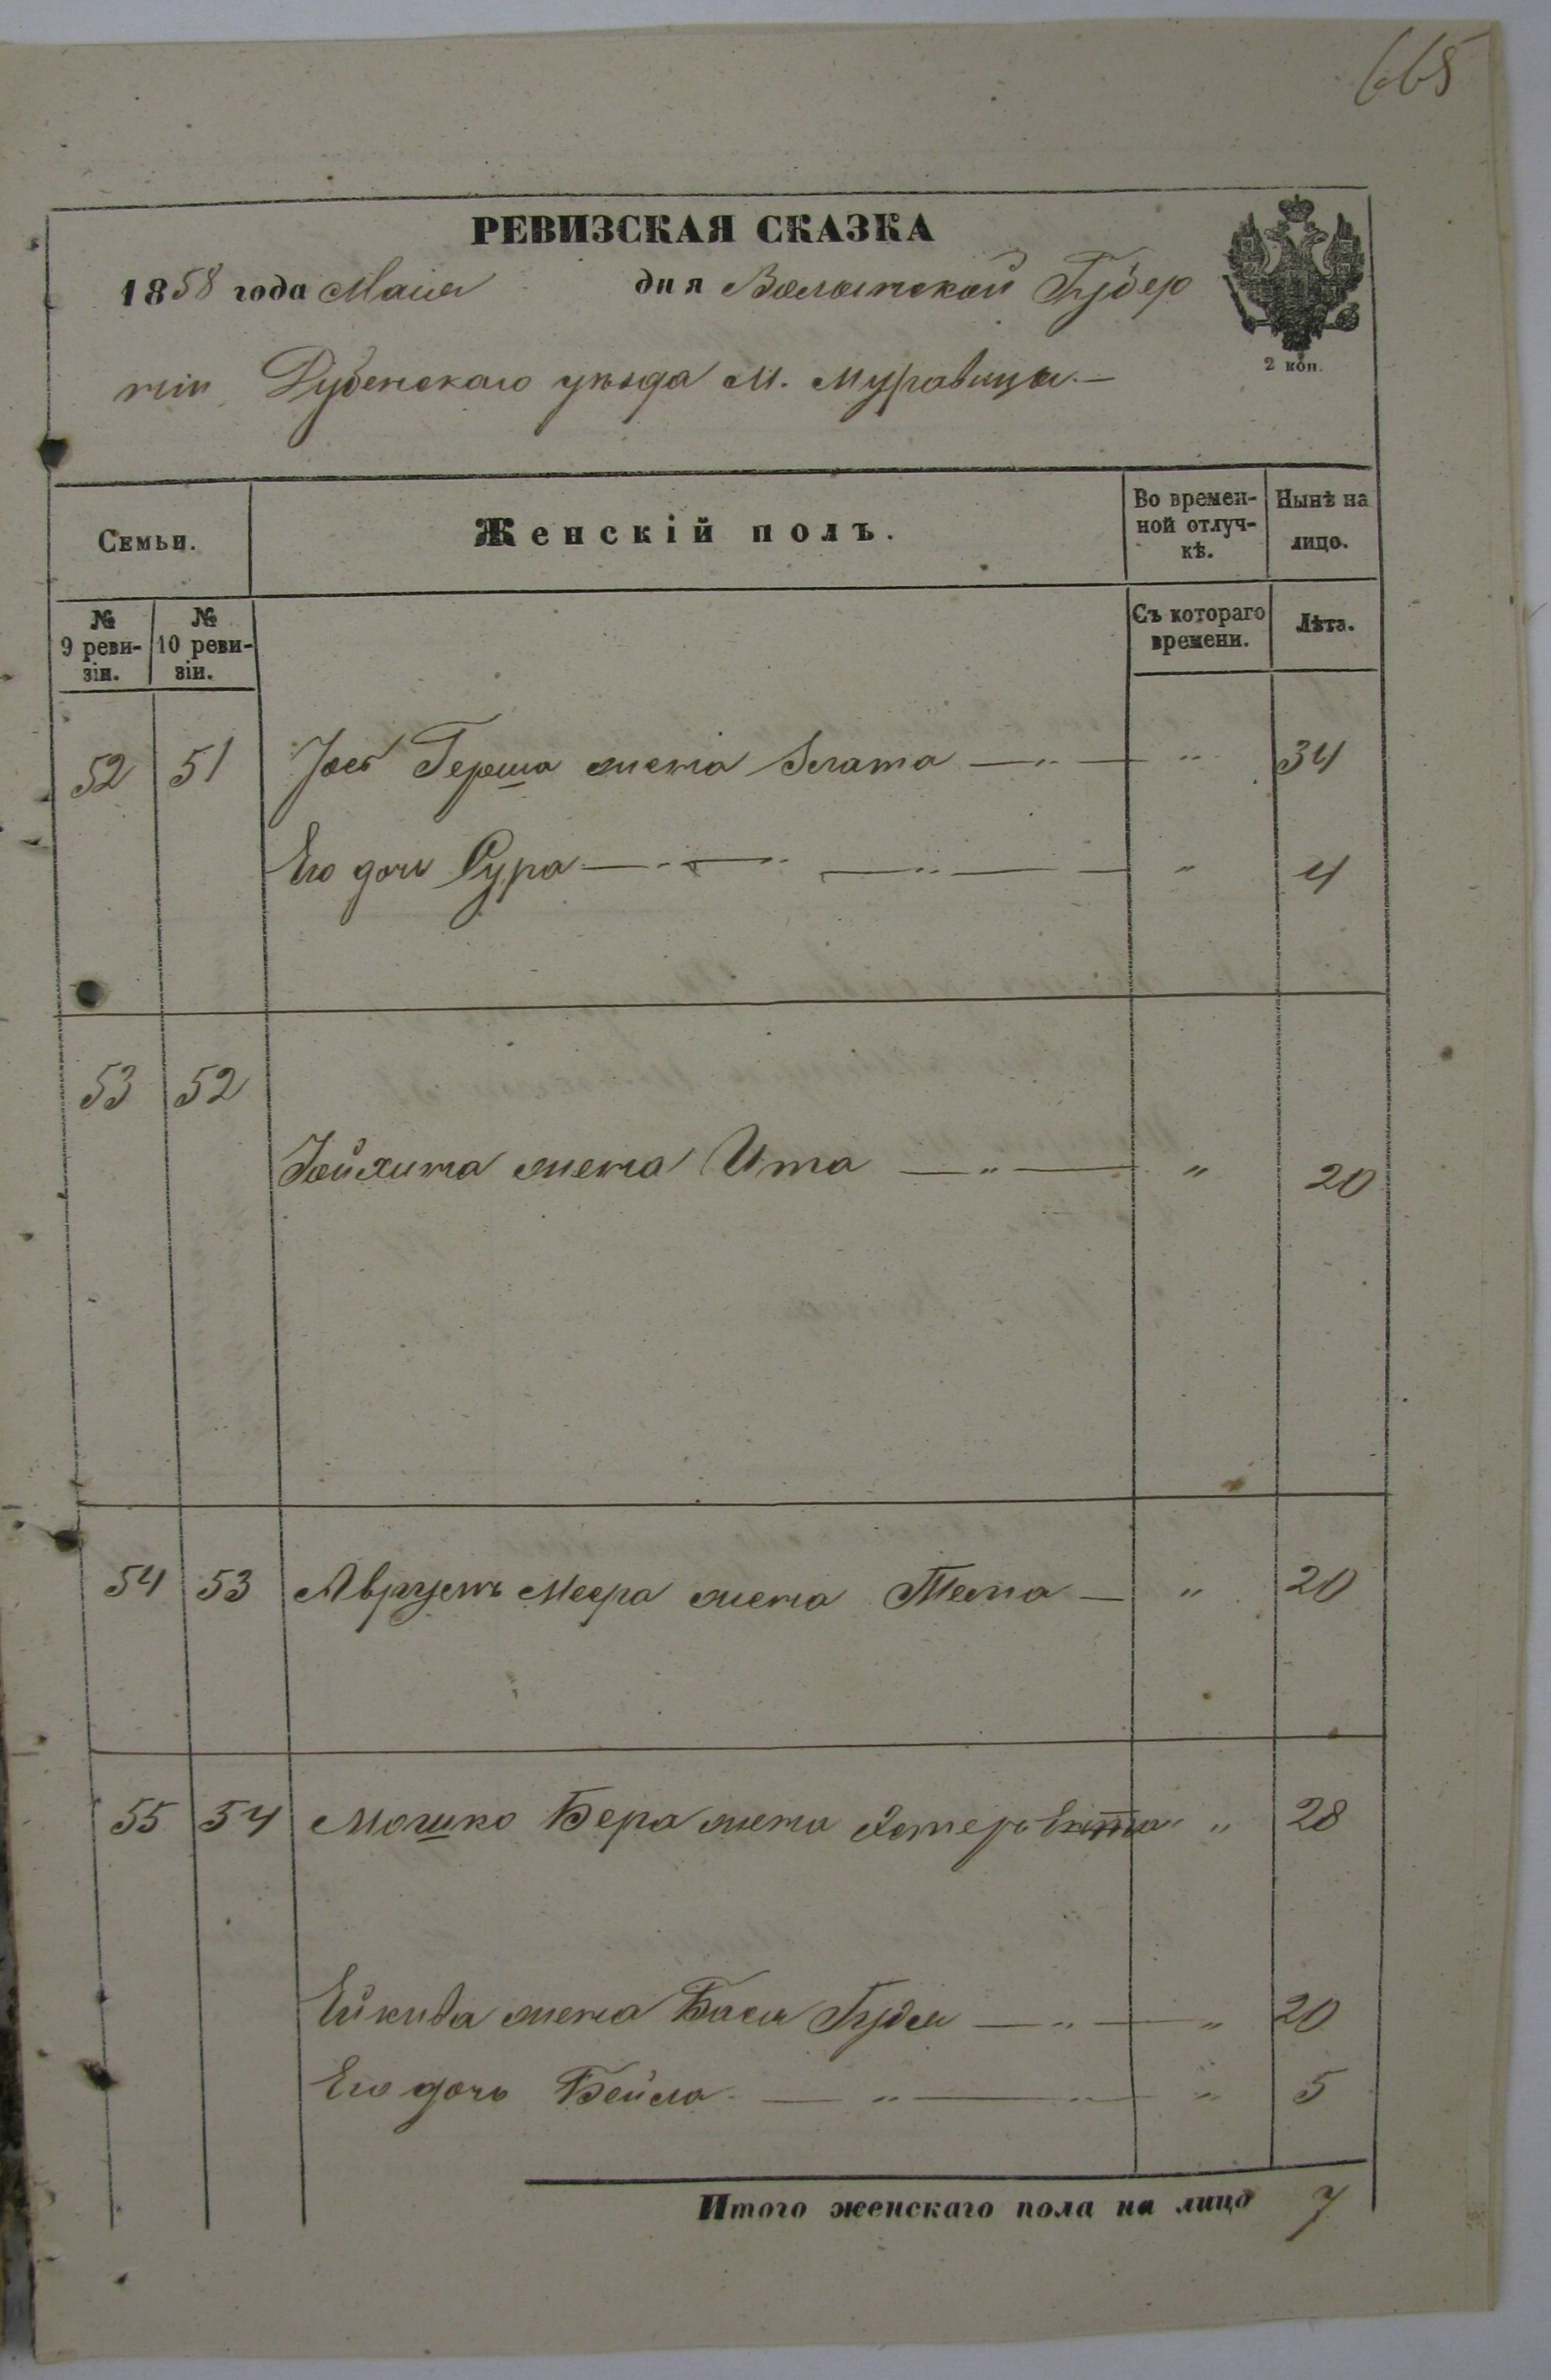 665
РЕВИЗСКАЯ СКАЗКА
1858 года Маия дня Волынской Губер
нiи Дубенскаго уѣзда М. Муравица.—
2 коп.
Семьи.
Женскiй полъ.
Во времен-
ной отлуч-
кѣ.
Нынѣ на
лицо.
№
9 реви-
зiи.
№
10 реви-
зiи.
Съ котораго
времени.
Лѣта.
52 51 Iося Герша жена Злата — " — " 34
Его дочь Сура — " — " — " — " 4
53 52
жена Ита — " — " 20
54 53 Меера жена — " 20
55 54 Мошко Бера жена " 28
жена Бася — " — " 20
Его дочь Бейла — " — " — " 5
Итого женскаго пола на лицо 7